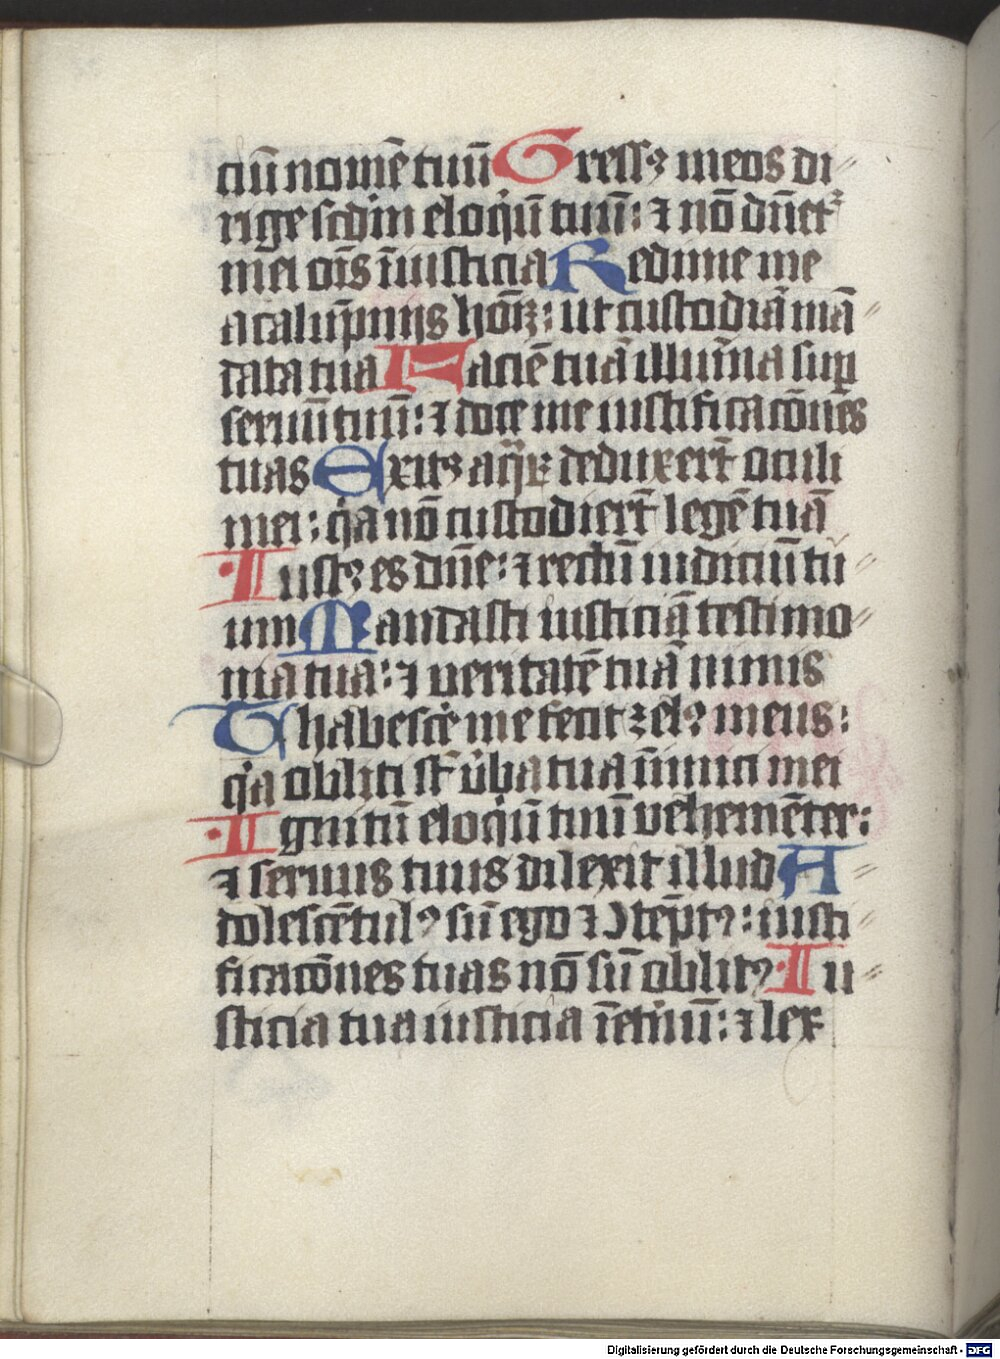 ciū nomē tuū Gressꝰ meos di⸗
rige scdm eloqū tuū: ⁊ nō dn̄et᷑
mei oīs īiusticia Redime me
a calūpnijs hoīꝫ: ut custodiā mā⸗
data tua Faciē tuā illumīa suꝑ
seruū tuū: ⁊ doce me iustificacōnes
tuas Exitꝰ aqͣꝝ deduxert̄ oculi
mei: qͥa nō custodiert̄ legē tuā
Iustꝰ es dn̄e: ⁊ rectū iudiciū tu⸗
um Mandasti iusticiā testimo⸗
nia tua: ⁊ veritatē tuā nimis
Thabescēͤ me fecit zelꝰ meus:
qͥa obliti sͭ v̄ba tua īimici mei
Ignitū eloqͥū tuū vehemēter:
⁊ seruus tuus dilexit illud A⸗
dolescētulꝰ sū ego ⁊ ꝯtēptꝰ: iusti⸗
ficacōnes tuas nō sū oblitꝰ Iu⸗
sticia tua iusticia ī et̄nū: ⁊ lex
Digitalisierung gefördert durch die Deutsche Forschungsgemeinschaft - DFG